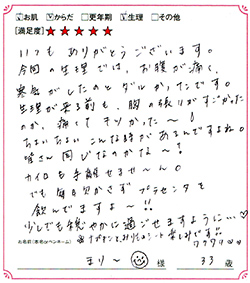 ☑お肌 ☑からだ □更年期 ☑生理 □その他
[満足度]★★★★★
いつも ありがとうございます。
今回の生理では、お腹が痛く、
寒気がしたのとダルかったです。
生理が来る前も、胸の張りがすごかった
のか、痛くてキツかった〜!
ちょいちょいこんな時があるんですよね。
皆さん同じなのかな〜!
カイロも手離せませ〜ん。
でも毎日欠かさずプラセンタを
飲んでますよ〜!!
少しでも穏やかに過ごせますように…♡
お名前(本名orペンネーム)
楽しみです
ワクワク
まり〜 様 33歳